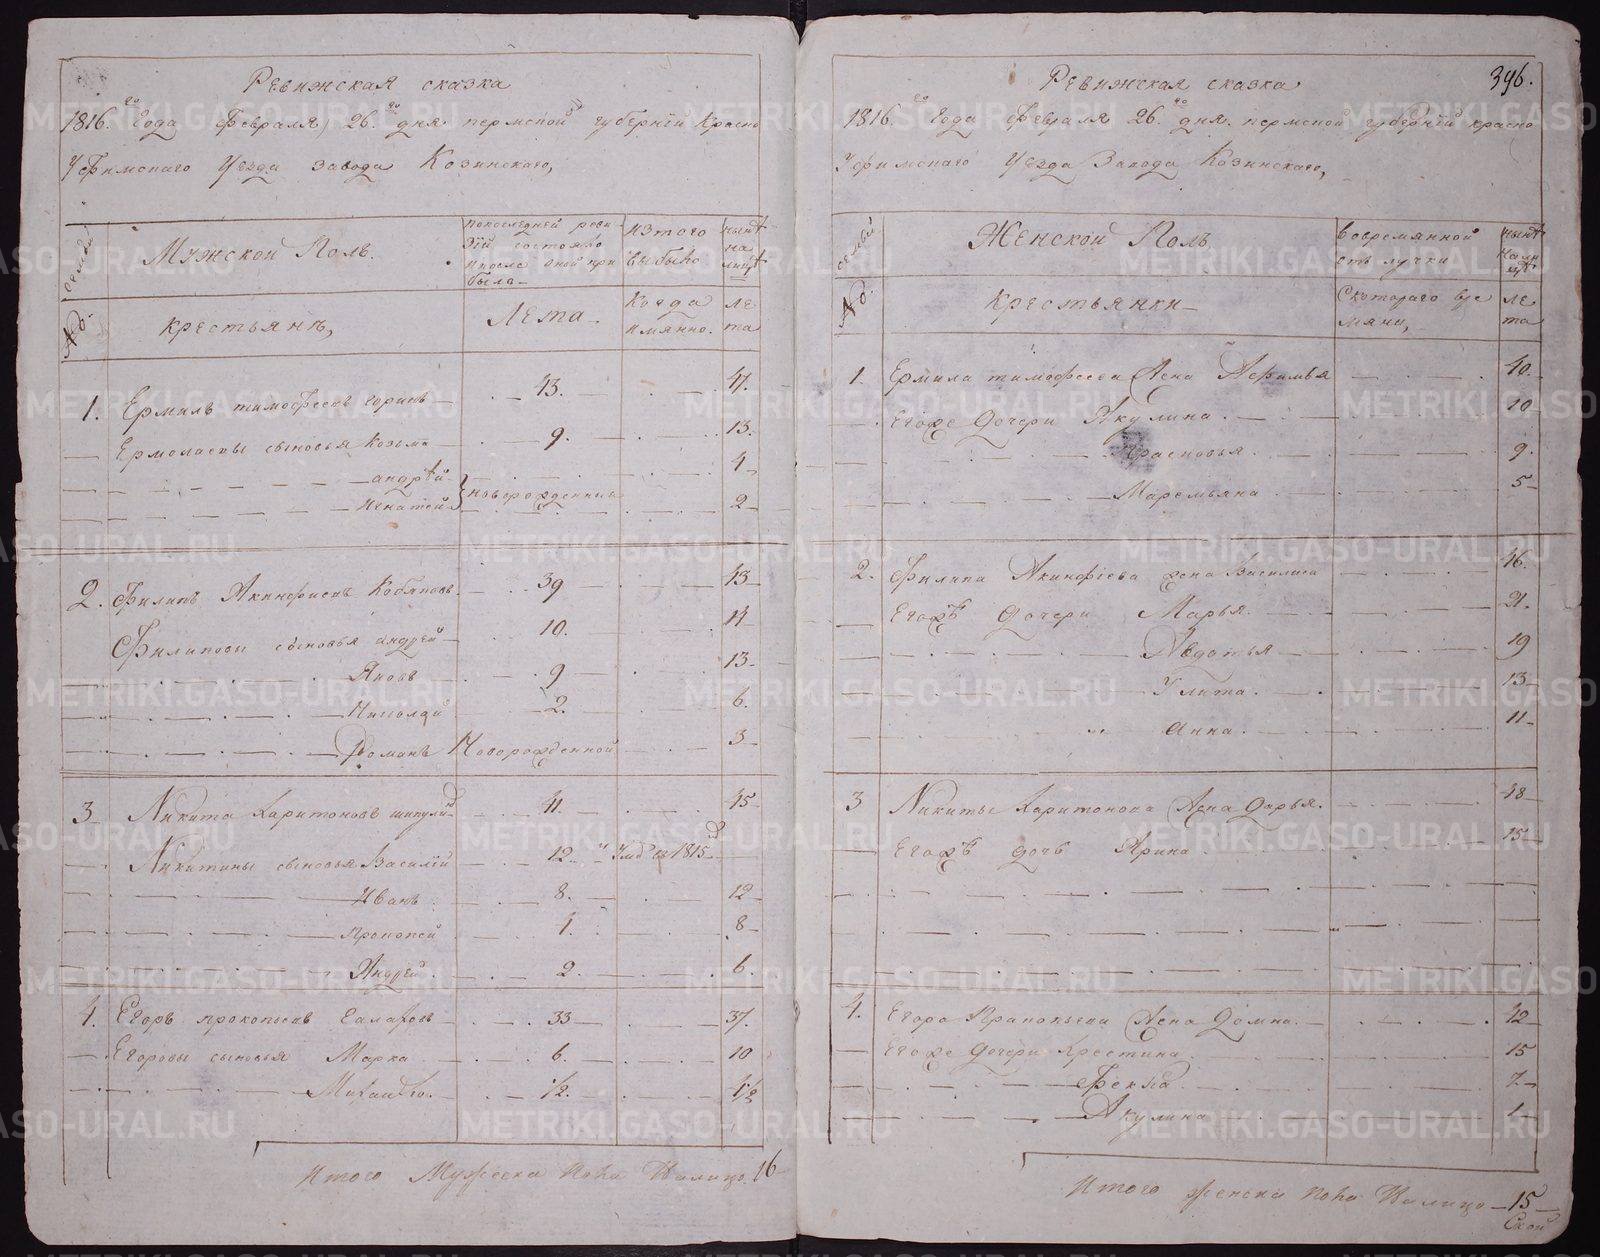 Ревижская сказка
1816.го Года Февраля 26.го дня пермской губернїи Красно
Уфимскаго Уезда завода Козинскаго,
№ семьи
Мужской Полъ.
попоследней реви
зїи состояло
и после оной при
было
изтого
выбыло
ныне
на
лице
крестьянъ,
Лета.
Когда
имянно.
ле
та
1. Ермилъ тимофеевъ горинъ 43. 47.
Ермолаевы сыновья Козьма 9. 13.
андрей 4
Игнатей } новорожденные 2
2. Филипъ Акинфиевъ Кобяковъ 39 43
Филиповы сыновья андрей 10. 14
Яковъ 9 13
Николай 2. 6.
Романъ Новорожденной 3
3 Никита Харитоновъ 41 45
Никитины сыновья Василїй 12 Умре въ 1815
Иванъ 8. 12
прокопей 4. 8
Андрей 2. 6.
4. Егоръ прокопьевъ 33 37.
Егоровы сыновья Марка 6. 10
Михайло. 1/2. 4 1/2
Итого Мужеска пола Налицо 16
396.
Ревижская сказка
1816.го Года Февраля 26.го дня. пермской губернїй красно
Уфимскаго Уезда Завода Козинскаго,
№ семьи
Женской Полъ
вовремянной
отлучки
ныне
нали
це
Крестьянки
Скотораго вре
мяни,
ле
та
1. Ермила тимофеева Жена Афимья 40.
Егоже дочери Акулина 10
Прасковья 9.
Маремьяна 5
2. Филипа Акинфїева жена Василиса 46.
Егожъ дочери Марья 21.
Авдотья 19
Улита 13
Анна 11
3 Никиты Харитонова Жена Дарья. 48
Егожъ дочь Арина 15
4. Егора Прокопьева Жена Домна 42
Егоже дочери Крестина 15
Фекла 7
Акулина 1
Итого женска пола Налицо 15
Ской